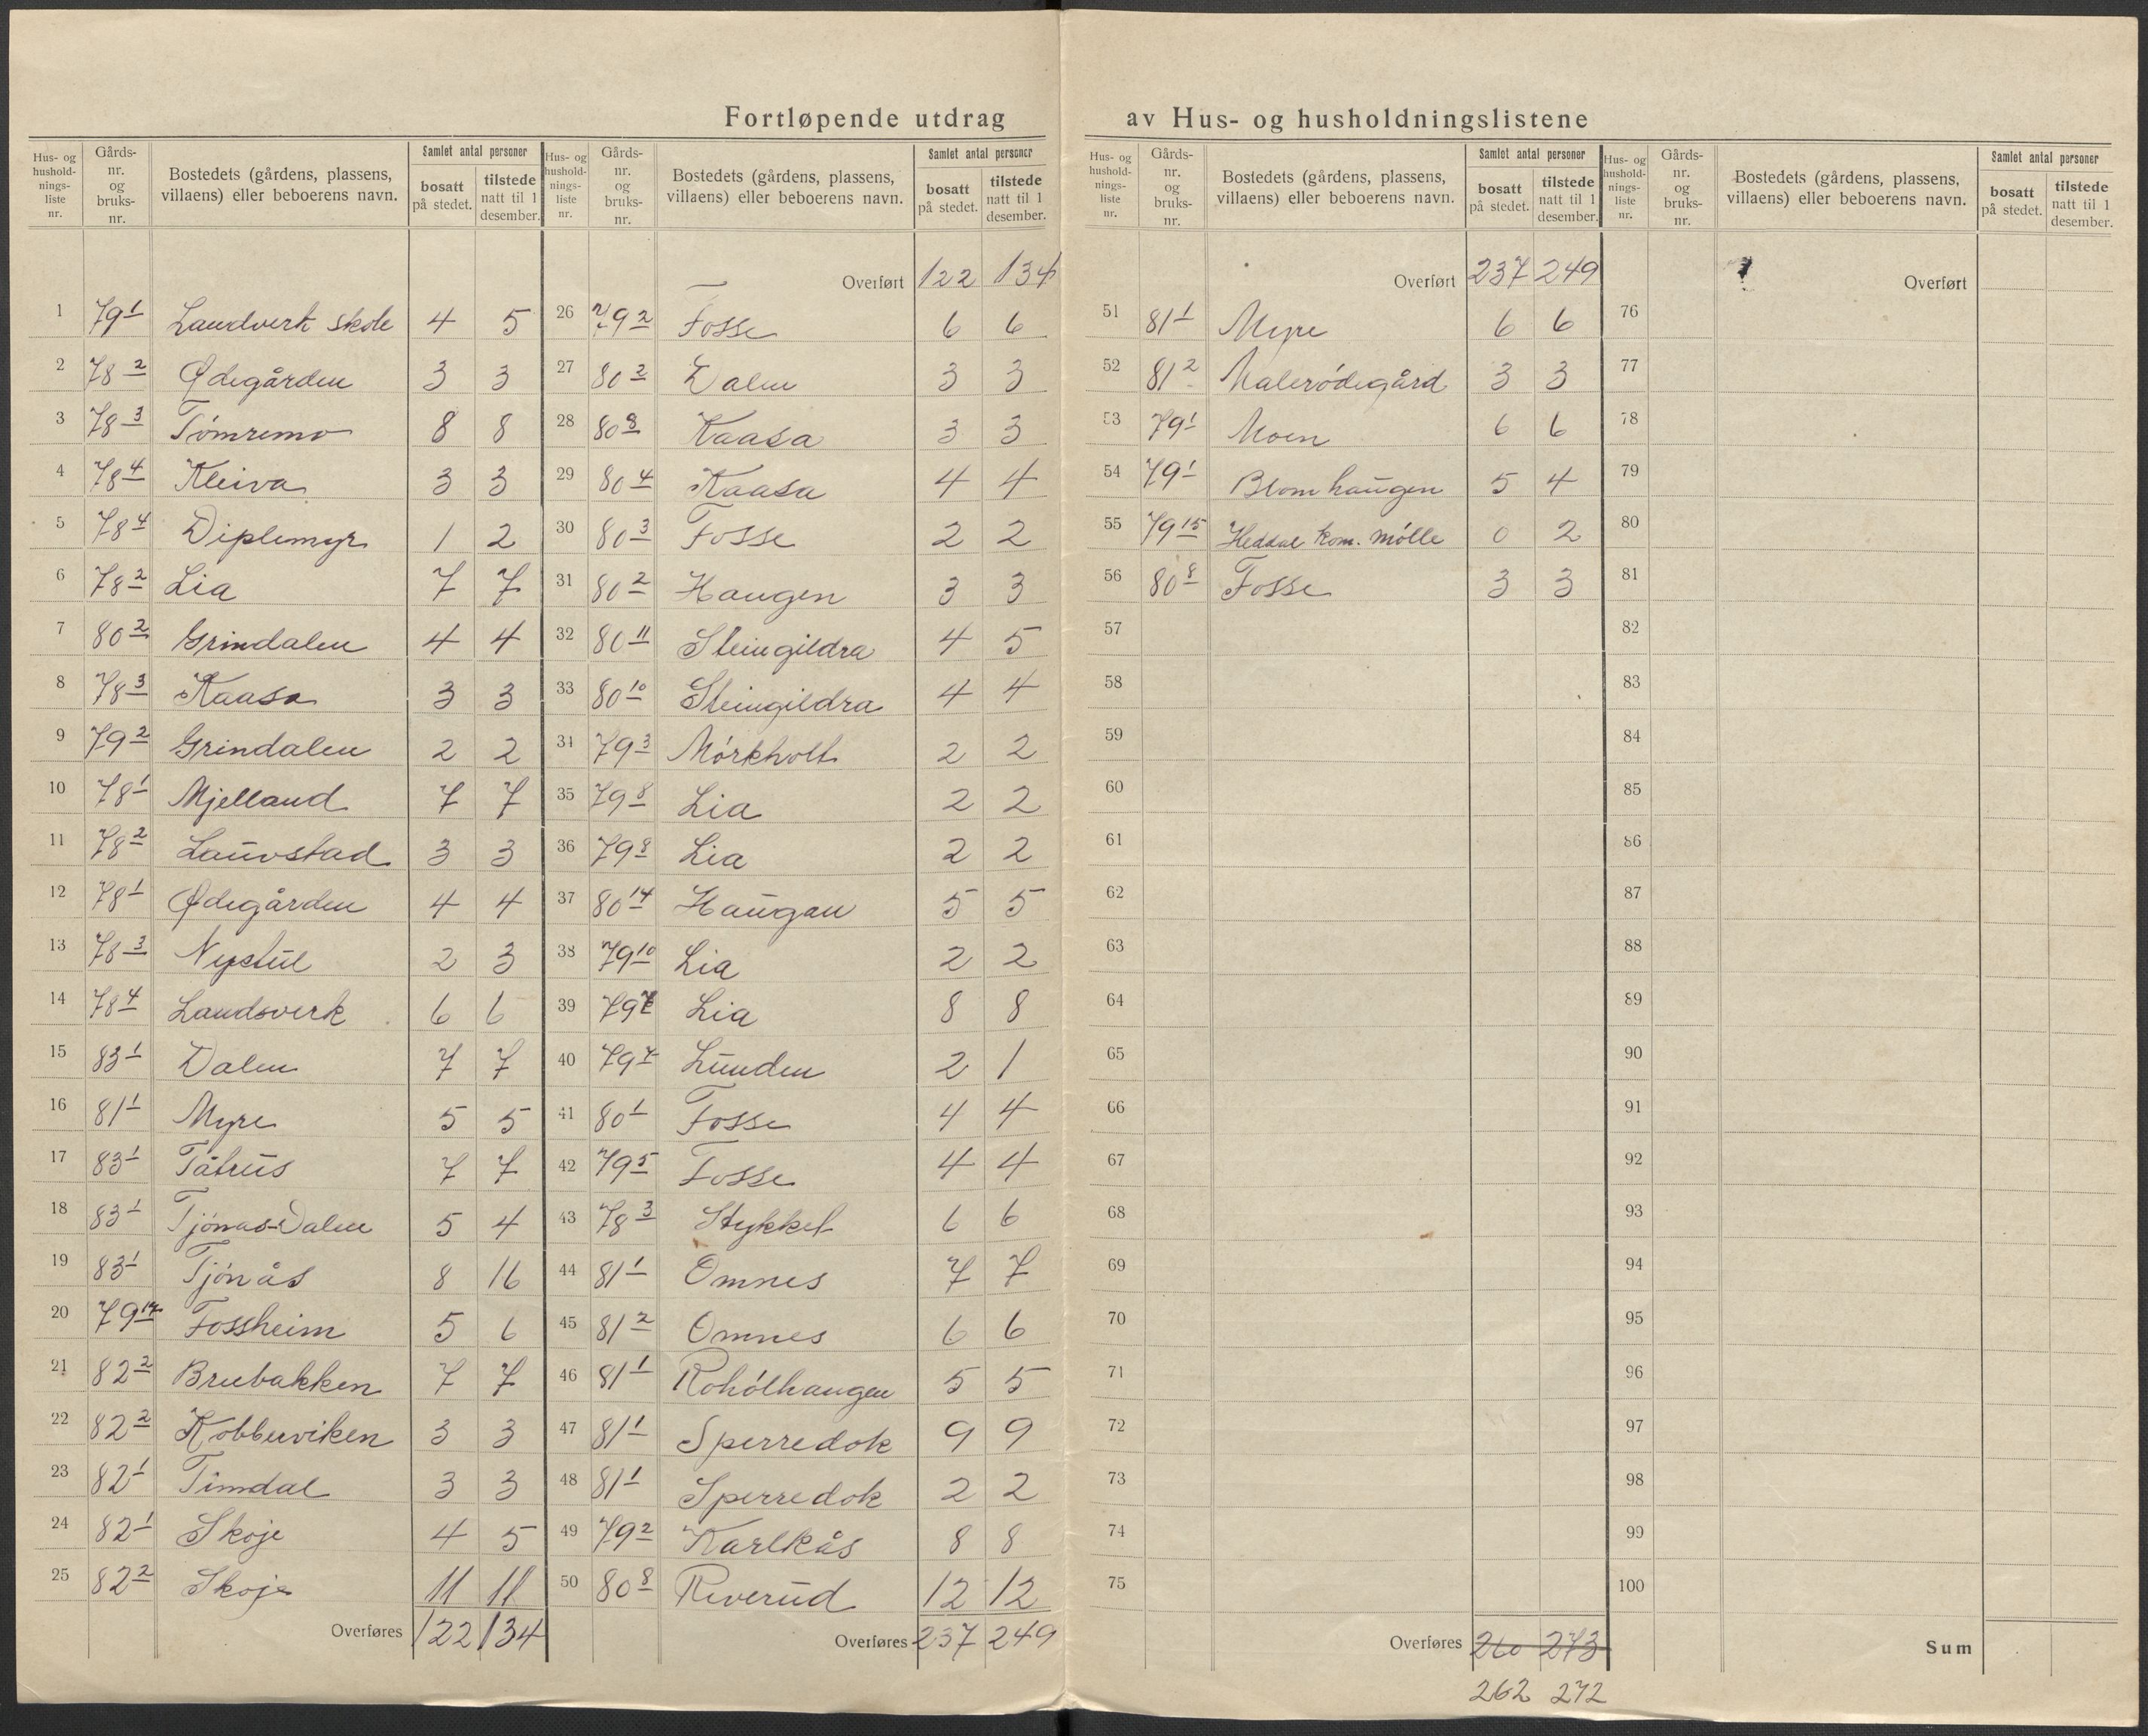 Fortløpende utdrag av Hus- og husholdningslistene
Hus- og hushold-nings-liste nr. Gårds-nr. og bruks-nr. Bostedets (gårdens, plassens, villaens) eller beboerens navn. Samlet antal personer bosatt på stedet. tilstede natt til 1 desember.
1 79 1 Landverk skole 4 5
2 78 2 Ødegården 3 3
3 78 3 Tömremo 8 8
4 78 4 Kleiva 3 3
5 78 4 Diplemyr 1 2
6 78 2 Lia 7 7
7 80 2 Grindalen 4 4
8 78 3 Kaasa 3 3
9 79 2 Grindalen 2 2
10 78 1 Mjelland 7 7
11 78 2 Lauvstad 3 3
12 78 1 Ødegården 4 4
13 78 3 Nystul 2 3
14 78 4 Landsverk 6 6
15 83 1 Dalen 7 7
16 81 1 Myre 5 5
17 83 1 Tåtrus 7 7
18 83 1 Tjönnas-Dalen 5 4
19 83 1 Tjönås 8 16
20 79 Fossheim 5 6
21 82 2 Brubakken 7 7
22 82 2 Kobberviken 3 3
23 82 1 Timdal 3 3
24 82 1 Skoje 4 5
25 82 2 Skoje 11 11
Overføres 122 134
Hus- og hushold-nings-liste nr. Gårds-nr. og bruks-nr. Bostedets (gårdens, plassens, villaens) eller beboerens navn. Samlet antal personer bosatt på stedet. tilstede natt til 1 desember.
Overført 122 134
26 79 2 Fosse 6 6
27 80 2 Dalen 3 3
28 80 8 Kaasa 3 3
29 80 4 Kaasa 4 4
30 80 3 Fosse 2 2
31 80 2 Haugen 3 3
32 80 11 Steingildra 4 5
33 80 10 Steingildra 4 4
34 79 3 Mörkholt 2 2
35 79 8 Lia 2 2
36 79 8 Lia 2 2
37 80 14 Haugan 5 5
38 79 10 Lia 2 2
39 79 Lia 8 8
40 79 7 Lunden 2 1
41 80 1 Fosse 4 4
42 79 5 Fosse 4 4
43 78 3 Stykket 6 6
44 81 1 Omnes 7 7
45 81 2 Omnes 6 6
46 81 1 Rohólhaugen 5 5
47 81 1 Sperredok 9 9
48 81 1 Sperredok 2 2
49 79 2 Karlkås 8 8
50 80 8 Riverud 12 12
Overføres 237 249
Hus- og hushold-nings-liste nr. Gårds-nr. og bruks-nr. Bostedets (gårdens, plassens, villaens) eller beboerens navn. Samlet antal personer bosatt på stedet. tilstede natt til 1 desember.
Overført 237 249
51 81 1 Myre 6 6
52 81 2 Malerödegård 3 3
53 79 1 Moen 6 6
54 79 1 Blomhaugen 5 4
55 79 15 Heddal kom. mölle 0 2
56 80 8 Fosse 3 3
57
58
59
60
61
62
63
64
65
66
67
68
69
70
71
72
73
74
75
Overføres 260 273
262 272
Hus- og hushold-nings-liste nr. Gårds-nr. og bruks-nr. Bostedets (gårdens, plassens, villaens) eller beboerens navn. Samlet antal personer bosatt på stedet. tilstede natt til 1 desember.
Overført
76
77
78
79
80
81
82
83
84
85
86
87
88
89
90
91
92
93
94
95
96
97
98
99
100
Sum